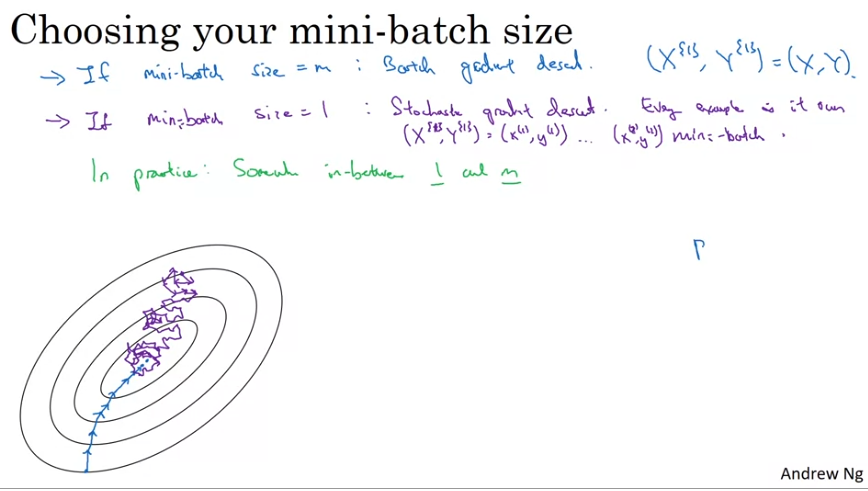 Choosing your mini-batch size
→ If mini-batch size = m : Batch gradient descent. (X^{1}, Y^{1}) = (X, Y).
→ If mini-batch size = 1 : Stochastic gradient descent. Every example is it own
(X^{1}, Y^{1}) = (x^(1), y^(1)) ... mini-batch.
In practice: in-between 1 and m
Andrew Ng